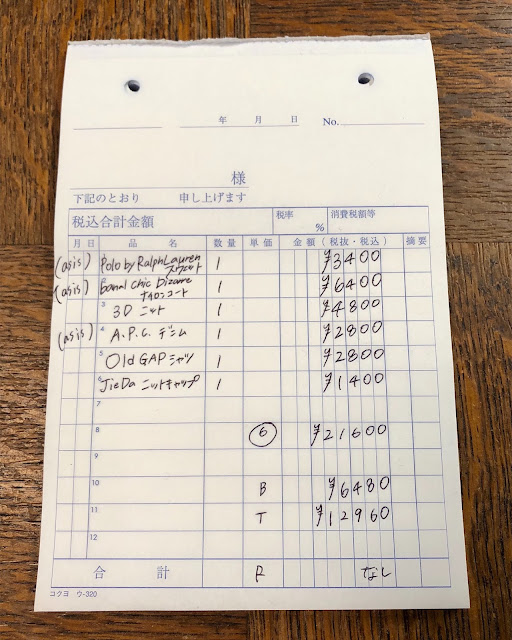 年 月 日 No.
様
下記のとおり 申し上げます
税込合計金額 税率 % 消費税額等
月 日 品 名 数量 単価 金額(税抜・税込) 摘要
(asis) Polo by Ralph Lauren 1 ¥3400
スウェット
(asis) 2 banal chic bizarre 1 ¥6400
ナイロンコート
3 3D ニット 1 ¥4800
(asis) 4 A.P.C. デニム 1 ¥2800
5 Old GAP シャツ 1 ¥2800
6 JieDa ニットキャップ 1 ¥1400
7
8 ⑥ ¥21600
9
10 B ¥6480
11 T ¥12960
12
合 計 R なし
コクヨ ウ-320